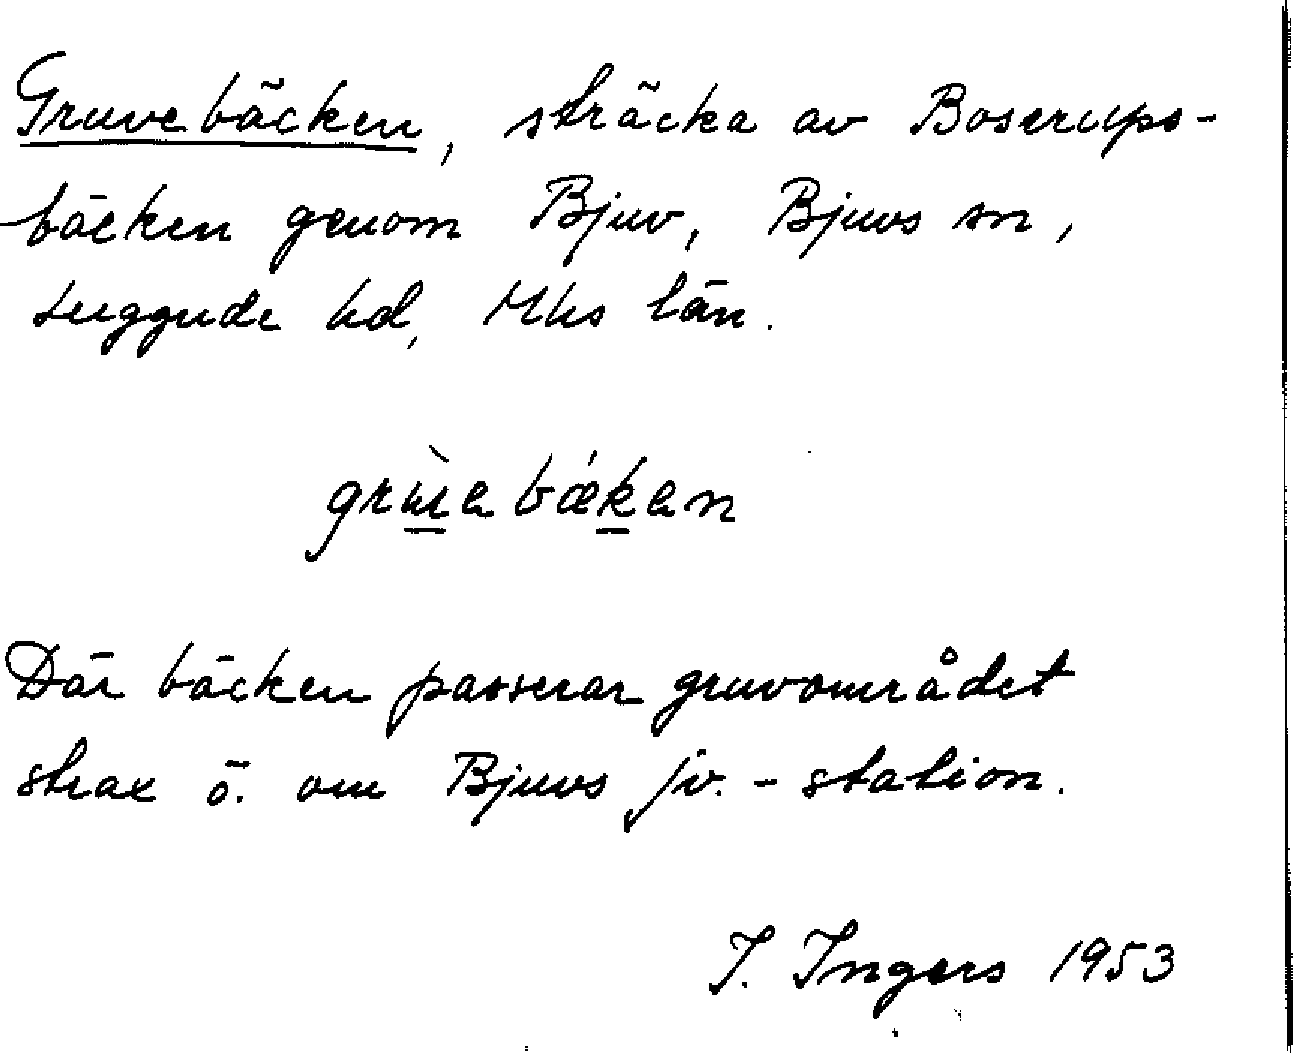 Gruvebäcken, sträcka av Boserups-
bäcken genom Bjuv, Bjuvs sn,
Luggude hd, Mhs län.
grɯ̀ebǽken
Där bäcken passerar gruvområdet
strax ö. om Bjuvs jv.-station.
I. Ingers 1953